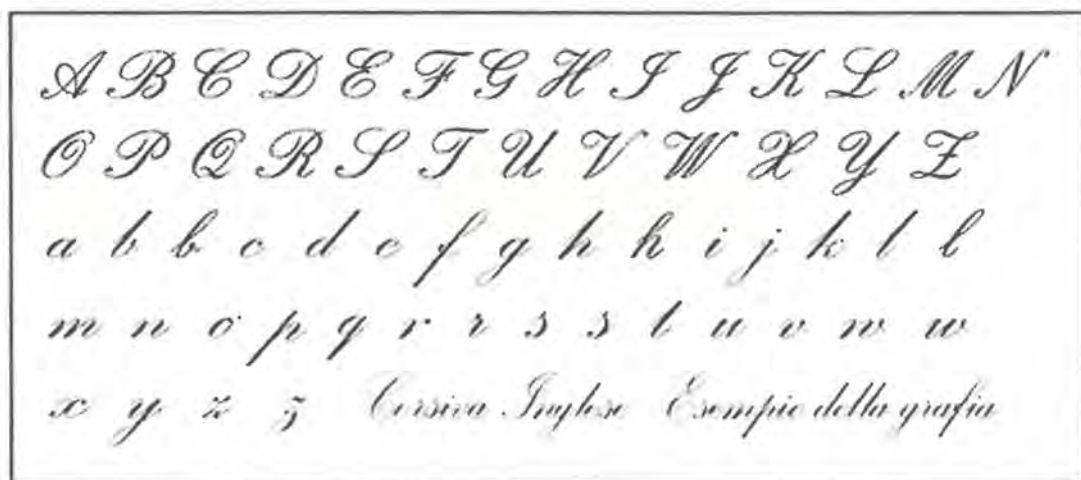 A B C D E F G H I J K L M N
O P Q R S T U V W X Y Z
a b b c d e f g h h i j k l l
m n o p q r r s s t u v w w
x y z z Corsivo Inglese Esempio della grafia